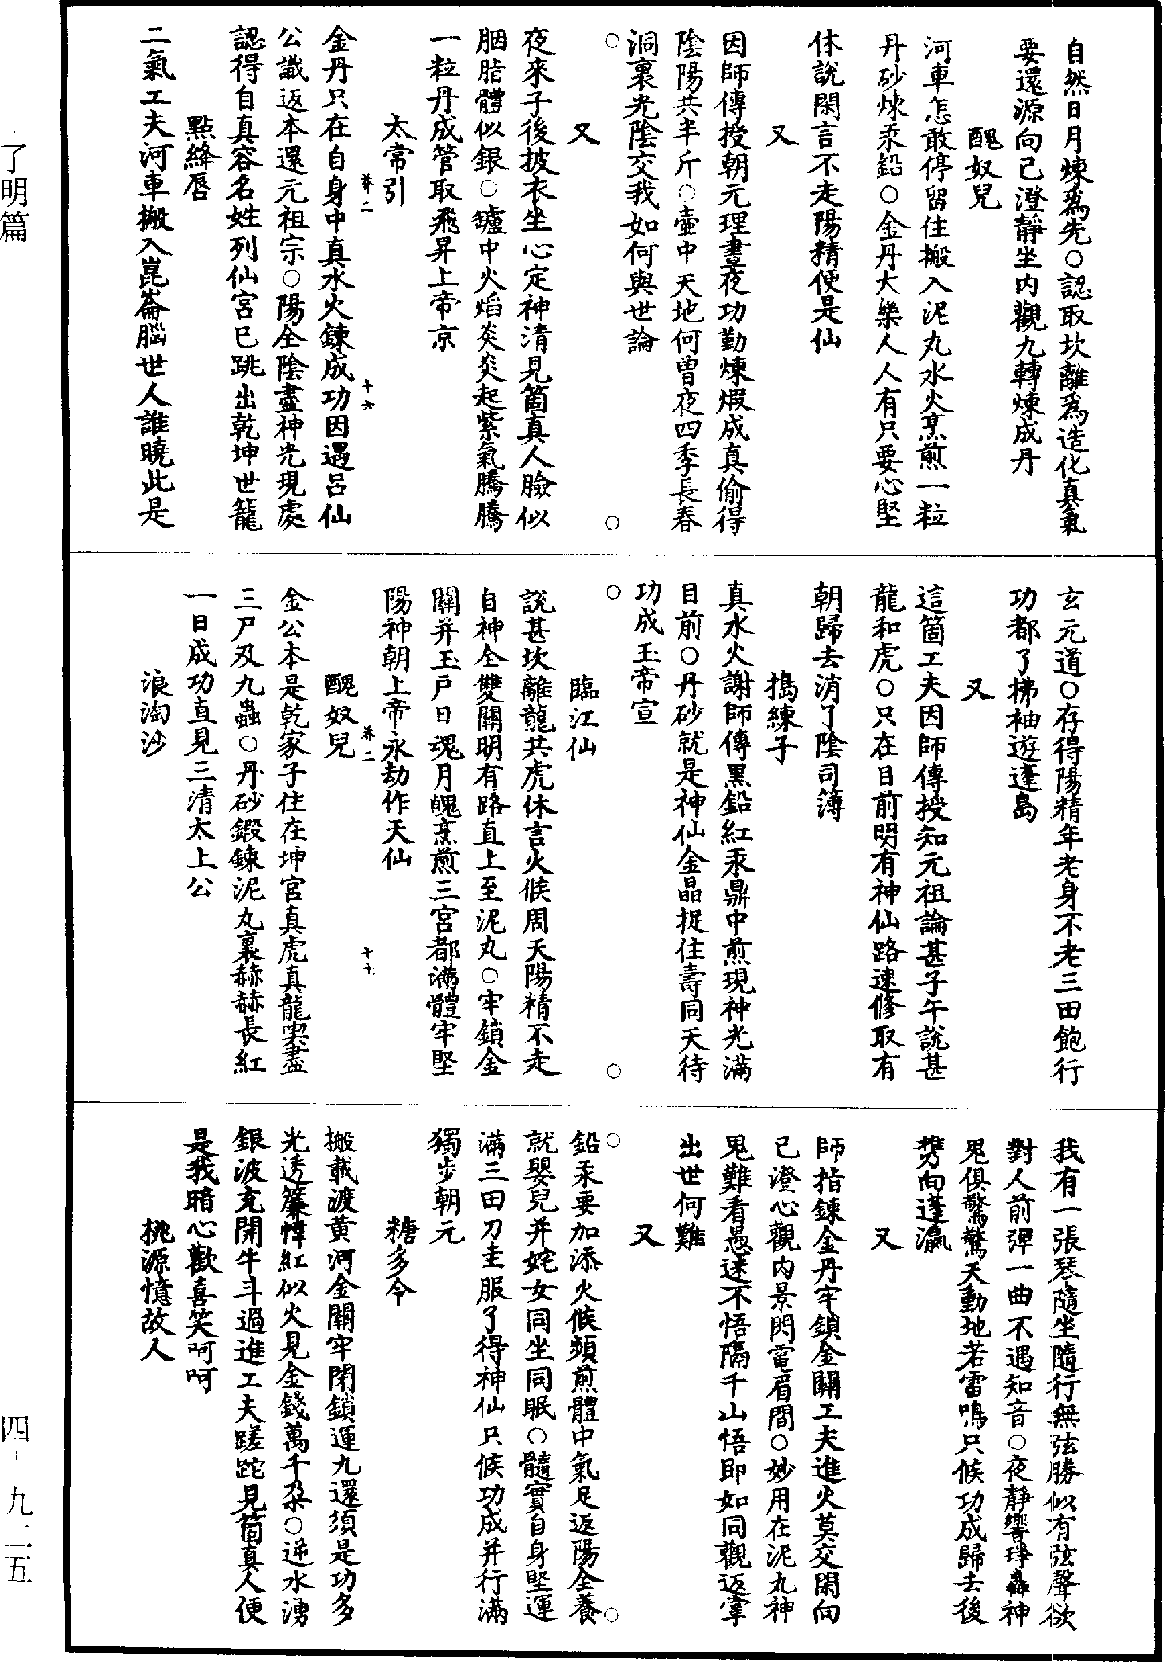 自然日月煉爲先○認取坎離爲造化真氣
要還源向己澄靜坐内觀九轉煉成丹
醜奴兒
河車怎敢停留住搬入泥丸水火烹煎一粒
丹砂煉汞鉛○金丹大樂人人有只要心堅
休說閑言不走陽精便是仙
又
因師傳授朝元理晝夜功勤煉煆成真偷得
陰陽共半斤○壺中天地何曾夜四季長春
洞裏光陰交我如何與世論
○○
又
夜來子後披衣坐心定神清見箇真人臉似
胭脂體似銀○爐中火焰炎炎起紫氣騰騰
一粒丹成管取飛昇上帝京
太常引
卷二
十六
金丹只在自身中真水火鍊成功因遇呂仙
公識返本還元祖宗○陽全陰盡神光現處
認得自真容名姓列仙宮已跳出乾坤世籠
點絳唇
二氣工夫河車搬入崑崙腦世人誰曉此是
玄元道○存得陽精年老身不老三田飽行
功都了拂袖遊蓬島
又
這箇工夫因師傳授知元祖論甚子午說甚
龍和虎○只在目前明有神仙路速修取有
朝歸去消了陰司簿
搗練子
真水火謝師傳黑鉛紅汞鼎中煎現神光滿
目前○丹砂就是神仙金晶捉住壽同天待
功成玉帝宣
○○
臨江仙
說甚坎離龍共虎休言火候周天陽精不走
自神全雙關明有路直上至泥丸○牢鎖金
關并玉戶日魂月魄烹煎三宮都滿體牢堅
陽神朝上帝永劫作天仙
醜奴兒
卷二
十七
金公本是乾家子住在坤宮真虎真龍喫盡
三尸及九蟲○丹砂鍛鍊泥丸裏赫赫長紅
一日成功直見三清太上公
浪淘沙
我有一張琴隨坐隨行無弦勝似有弦聲欲
對人前彈一曲不遇知音○夜靜響琤轟神
鬼俱驚驚天動地若雷鳴只候功成歸去後
携向蓬瀛
又
師指鍊金丹牢鎖金關工夫進火莫交閑向
己澄心觀内景閃電眉間○妙用在泥丸神
鬼難看愚迷不悟隔千山悟即如同觀返掌
出世何難
又
○○
鉛汞要加添火候頻煎體中氣足返陽全養
就嬰兒并姹女同坐同眠○髓實自身堅運
滿三田刀圭服了得神仙只候功成并行滿
獨步朝元
糖多令
搬載渡黄河金關牢閉鎖運九還須是功多
光透簾幃紅似火見金錢萬千朶○逆水湧
銀波充開牛斗過進工夫蹉跎見箇真人便
是我暗心歡喜笑呵呵
桃源憶故人
了明篇
四-九二五